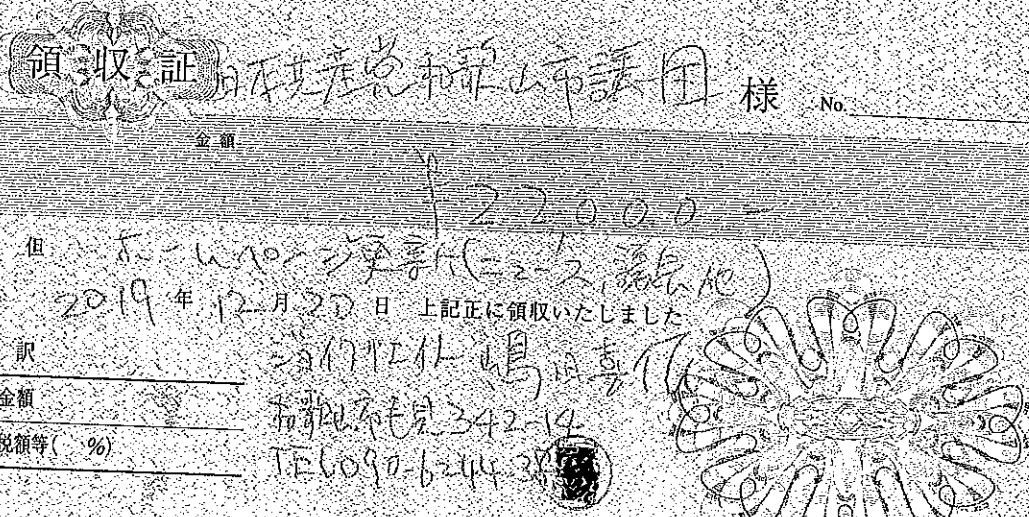 領収証 日本共産党和歌山市議団 様 No.
金額
¥22000-
但 ホームページ更新(ニュース、議長他)
2019年12月20日 上記正に領収いたしました
訳
嶋田喜
金額 和歌山市毛見342-14
税額等( %) TEL090-6244-38